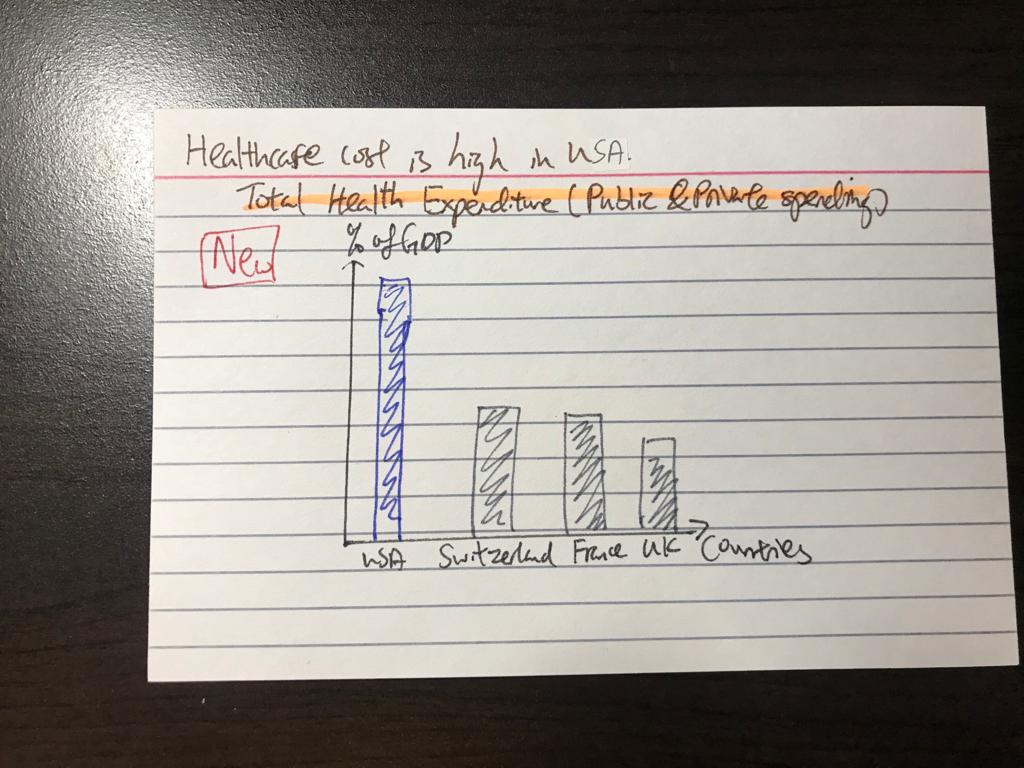 Healthcare cost is high in USA.
Total Health Expenditure (Public & Private spending)
New
% of GDP
USA Switzerland France UK Countries